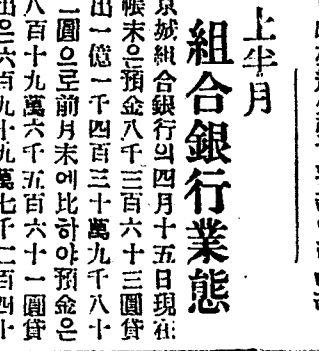 上半月
組合銀行業態
京城組合銀行의四月十五日現在
帳末은預金八千三百六十三圓貸
出一億一千四百三十萬九千八十
一圓으로前月末에比하야預金은
八百十九萬六千五百六十一圓貸
出은六百九十九萬七千二百四十